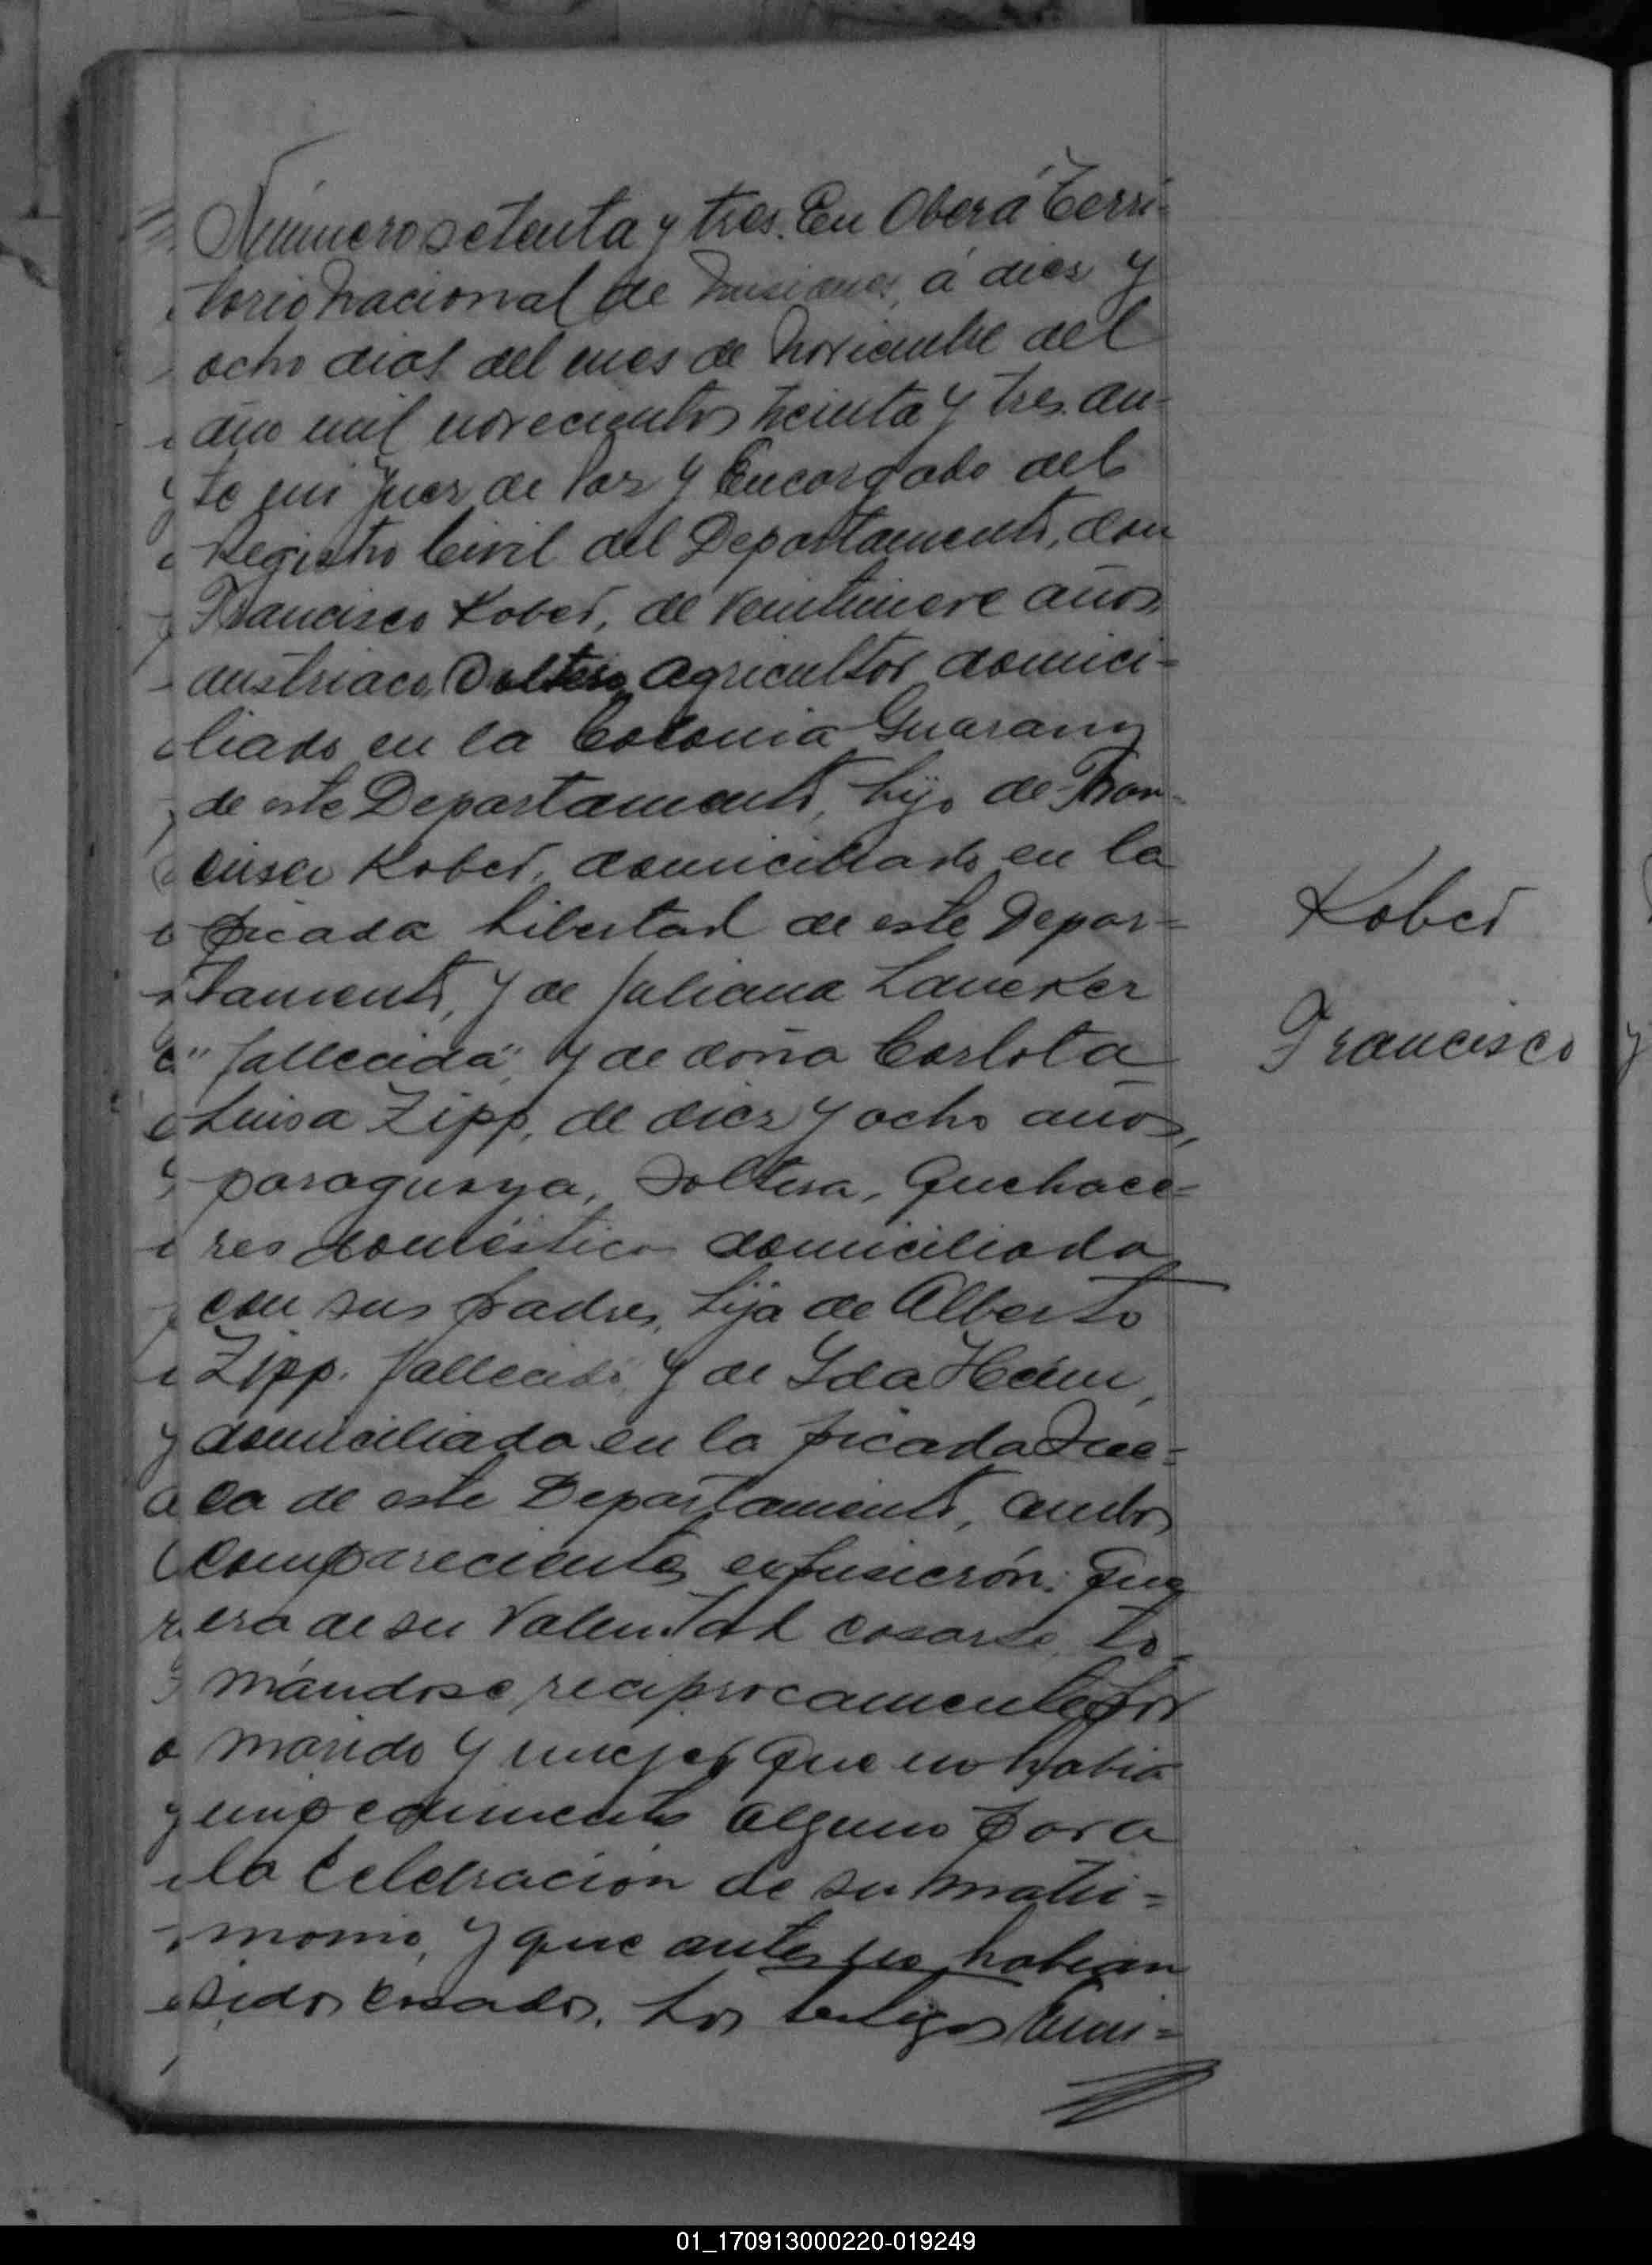 Número setenta y tres. En Oberá Terri-
torio Nacional de Misiones, á dies y
ocho dias del mes de Noviembre del
año mil novecientos treinta y tres. an-
te mi Juez de Paz y Encargado del
Registro Civil del Departamento, don
Francisco Kober, de veintinueve años
austriaco, Soltero, agricultor domici-
liado en la Colonia Guarany
de este Departamento, hijo de Fran-
cisco Kober, domiciliado en la
picada Libertad de este Depar=
tamento, y de Juliana Lancker
"fallecida", y de doña Carlota
Luisa Zipp, de diez y ocho años,
paraguaya, Soltera, Quehace=
res domésticos domiciliada
con sus padres, hija de Alberto
Zipp. fallecido, y de Ida Heim,
domiciliada en la picada Sue=
ca de este Departamento, ambos
comparecientes expusierón: que
era de su Voluntad casarse, to-
mándose reciprocamente por
marido y mujer que no habia
impedimento alguno para
la Celebración de su matri=
monio, y que antes no habian
sidos casados. Los testigos
Kober
Francisco
01_170913000220-019249